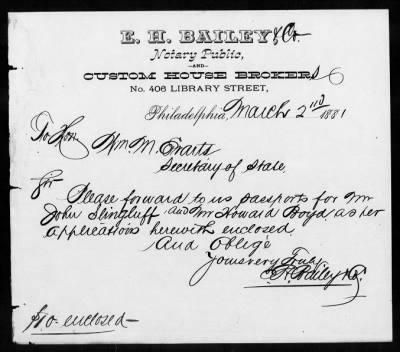 E. H. BAILEY & Co.
Notary Public,
—AND—
CUSTOM HOUSE BROKERS
No. 406 LIBRARY STREET,
Philadelphia, March 2nd 1881
To Hon.
Wm M. Evarts
Secretary of State,
Sir
Please forward to us passports for Mr
John Slingluff and Mr Howard Boyd as per
applications herewith enclosed
And Oblige
Yours very Truly
E. H. Bailey & Co.
$10 - enclosed -